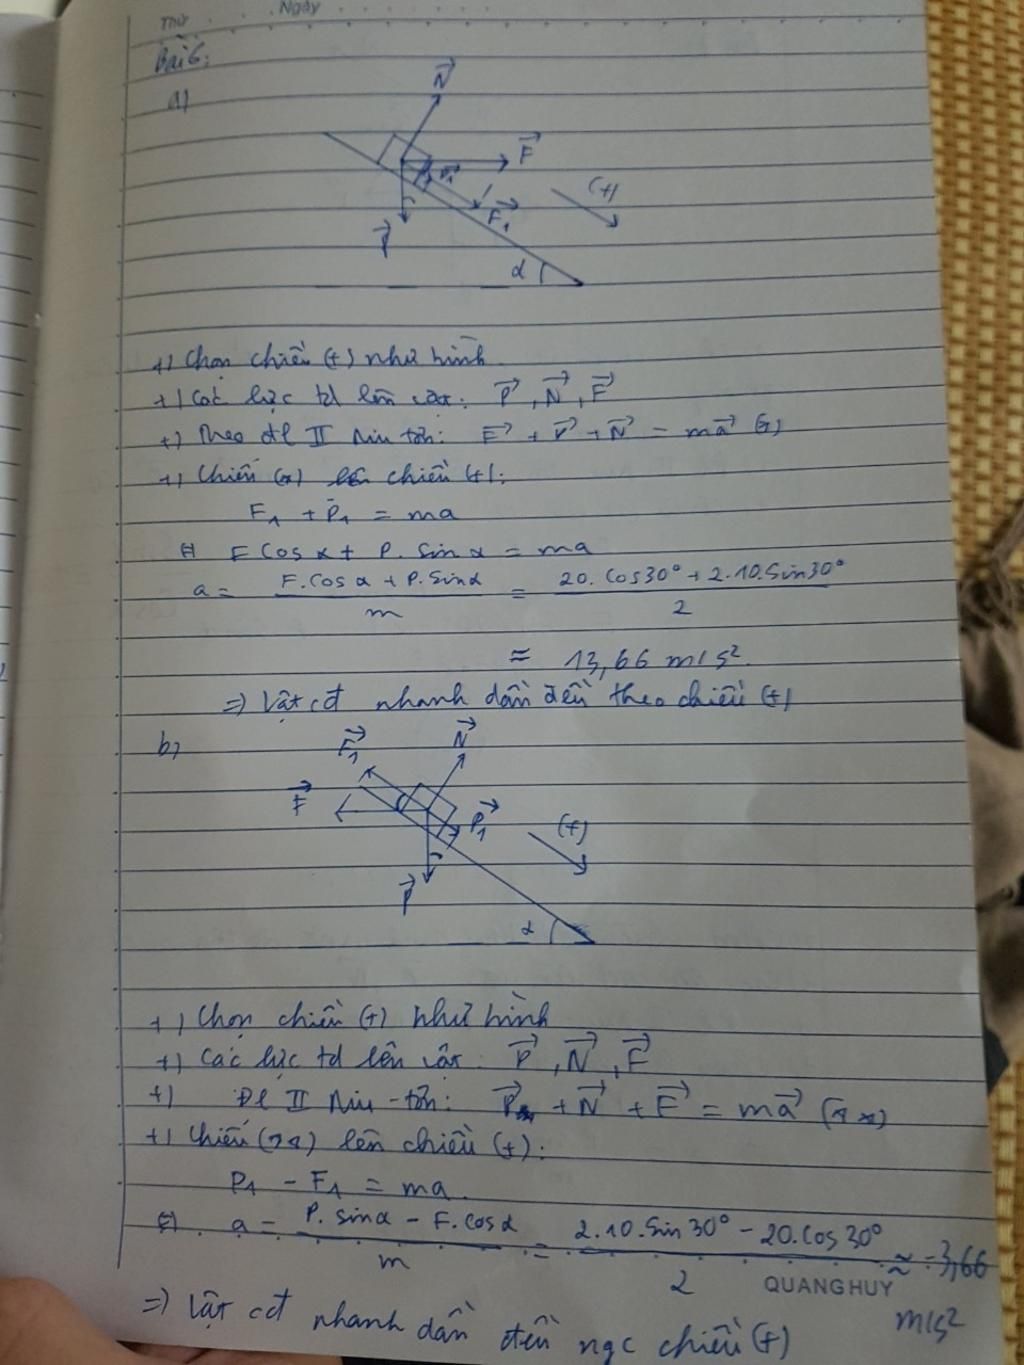 Thứ Ngày
Bài 6:
a)
N⃗
F⃗
P₁⃗
(+)
F₁⃗
P⃗
α
+) Chọn chiều (+) như hình
+) Các lực td lên vật: P⃗, N⃗, F⃗
+) Theo đl II Niu tơn: F⃗ + P⃗ + N⃗ = ma⃗ (*)
+) Chiếu (*) lên chiều (+):
F₁ + P₁ = ma
⇔ F cos α + P. sin α = ma
a = (F. cos α + P. sin α)/m = (20. cos 30° + 2.10. sin 30°)/2
≈ 13,66 m/s².
=> Vật cđ nhanh dần đều theo chiều (+)
b)
F₁⃗ N⃗
F⃗
P₁⃗ (+)
P⃗
α
+) Chọn chiều (+) như hình
+) Các lực td lên vật: P⃗, N⃗, F⃗
+) Đl II Niu-tơn: P⃗ + N⃗ + F⃗ = ma⃗ (**)
+) Chiếu (**) lên chiều (+):
P₁ - F₁ = ma.
⇔ a = (P. sin α - F. cos α)/m = (2.10. sin 30° - 20. cos 30°)/2 ≈ -3,66
QUANG HUY
m/s²
=> Vật cđ nhanh dần đều ngc chiều (+)